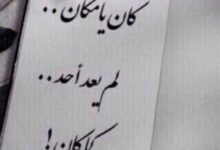 كان يا مكان ..
لم يعد أحد ..
كما كان !